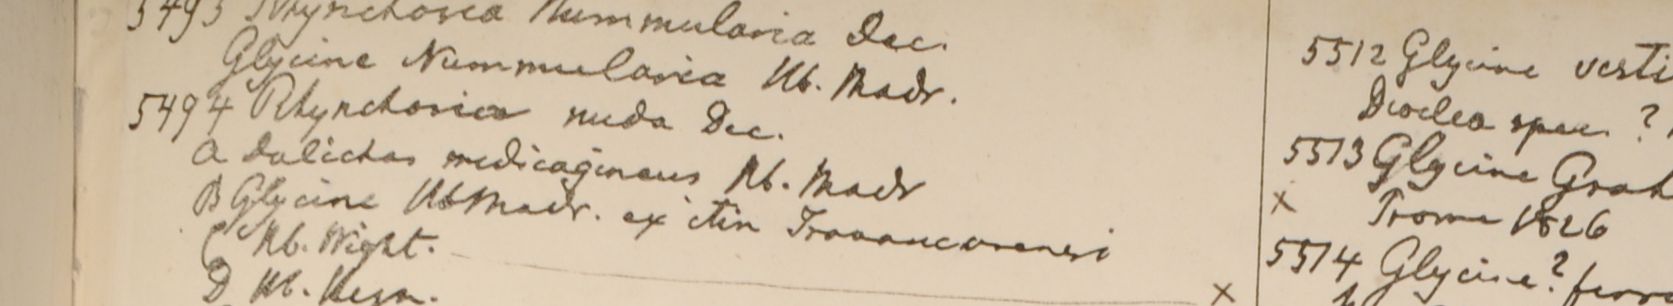 5493 Rhynchosia Nummularia Dec.
Glycine Nummularia Hb. Madr.
5494 Rhynchosia nuda Dec.
A Dolichos medicagineus Hb. Madr
B Glycine Hb Madr. ex itin Travancorensi
C Hb. Wight.
x
D Hb. Heyn.
5512 Glycine vesti
Dioclea spec. ?
5513 Glycine Grah
x Prome 1826
5514 Glycine?